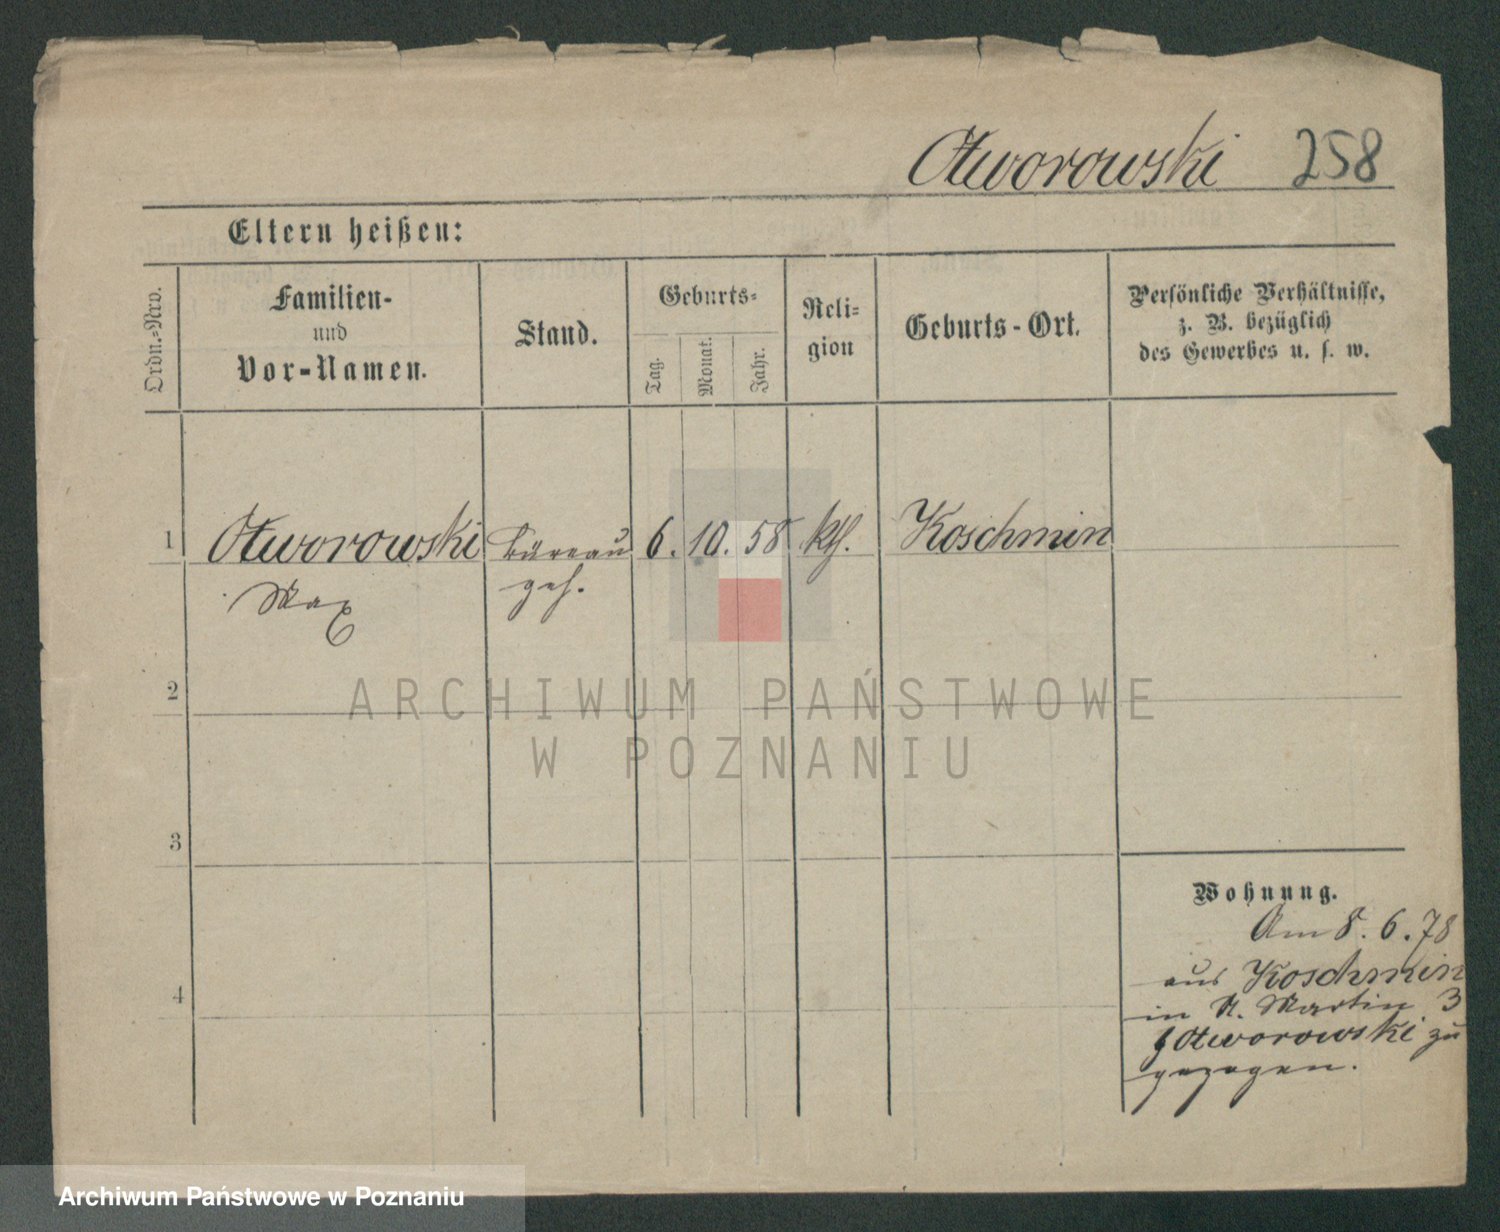 Otworowski 258
Eltern heißen:
Ordn.-Nro.
Familien-
und
Vor-Namen.
Stand.
Geburts-
Tag.
Monat.
Jahr.
Reli-
gion
Geburts-Ort.
Persönliche Verhältnisse,
z. B. bezüglich
des Gewerbes u. s. w.
1 Otworowski Büreau 6. 10. 58 kth. Koschmin
Max geh.
2
3
4
Wohnung.
Am 8. 6. 78
aus Koschmin
in St. Martin 3
Otworowski zu
gezogen.
ARCHIWUM PAŃSTWOWE
W POZNANIU
Archiwum Państwowe w Poznaniu